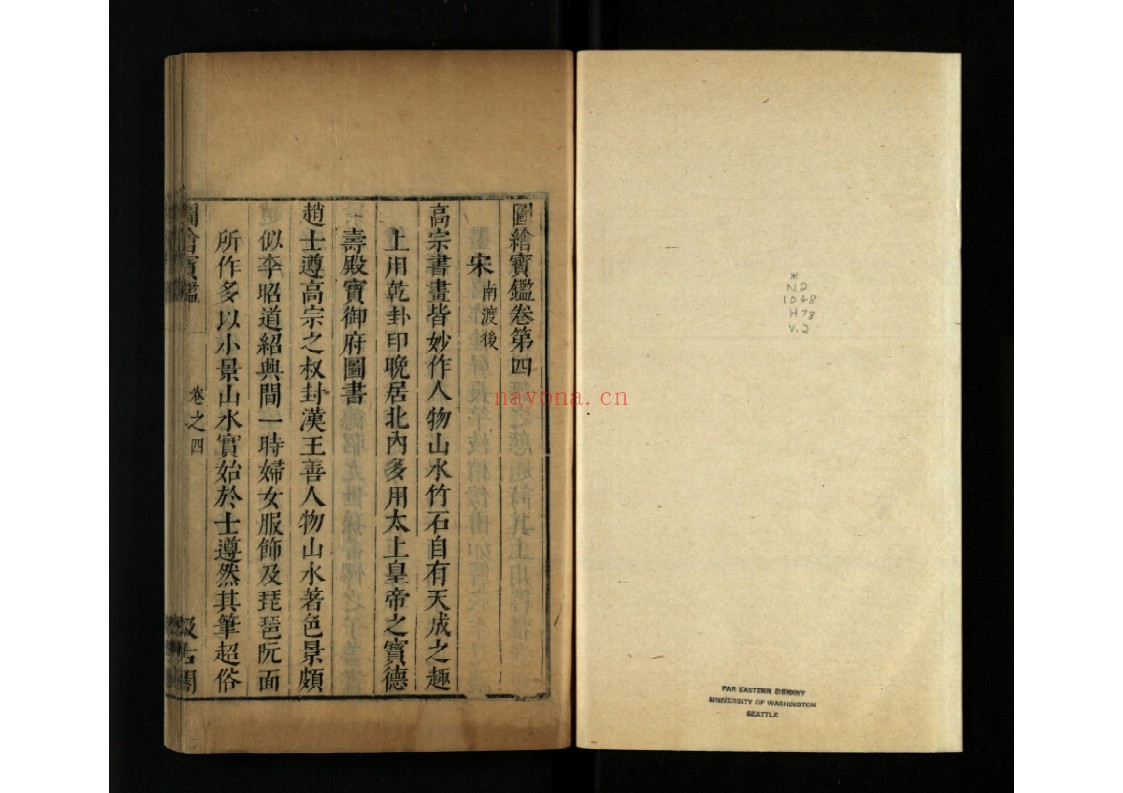 圖繪寶鑑卷第四
宋 南渡後
高宗書畫皆妙作人物山水竹石自有天成之趣
上用乾卦印晚居北內多用太上皇帝之寶德
壽殿寶御府圖書
趙士遵高宗之叔封漢王善人物山水著色景頗
似李昭道紹興間一時婦女服飾及琵琶阮面
所作多以小景山水實始於士遵然其筆超俗
圖繪寶鑑
卷之四
汲古閣
nayona.cn
*
ND
1048
H78
V.2
FAR EASTERN LIBRARY
UNIVERSITY OF WASHINGTON
SEATTLE